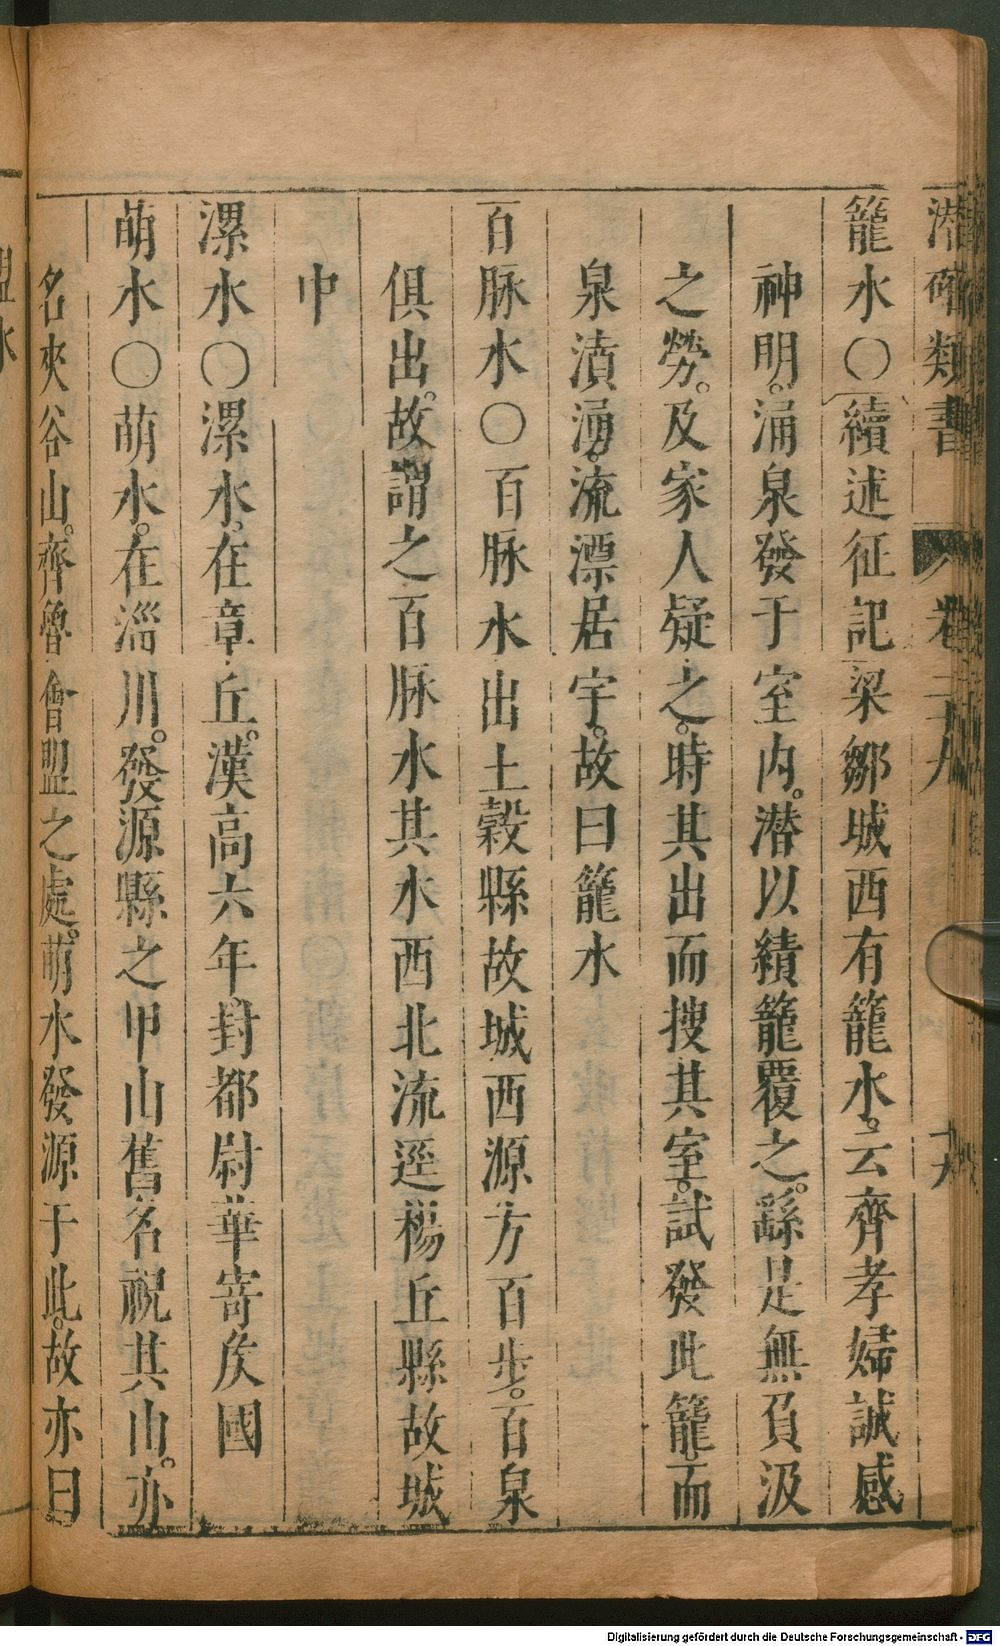 潛確類書 卷二十九 十九
籠水〇續述征記梁鄒城西有籠水。云齊孝婦誠感
神明。涌泉發于室内。潛以績籠覆之。繇是無負汲
之勞。及家人疑之。時其出而搜其室。試發此籠。而
泉漬湧。流漂居宇。故曰籠水
百脉水〇百脉水出土穀縣故城西源方百步。百泉
俱出。故謂之百脉水其水西北流逕楊丘縣故城
中
漯水〇漯水。在章丘。漢高六年。封都尉華寄矦國
萌水〇萌水。在淄川。發源縣之甲山舊名祝其山。亦
名夾谷山。齊魯會盟之處。萌水發源于此。故亦曰
盟水
Digitalisierung gefördert durch die Deutsche Forschungsgemeinschaft - DFG